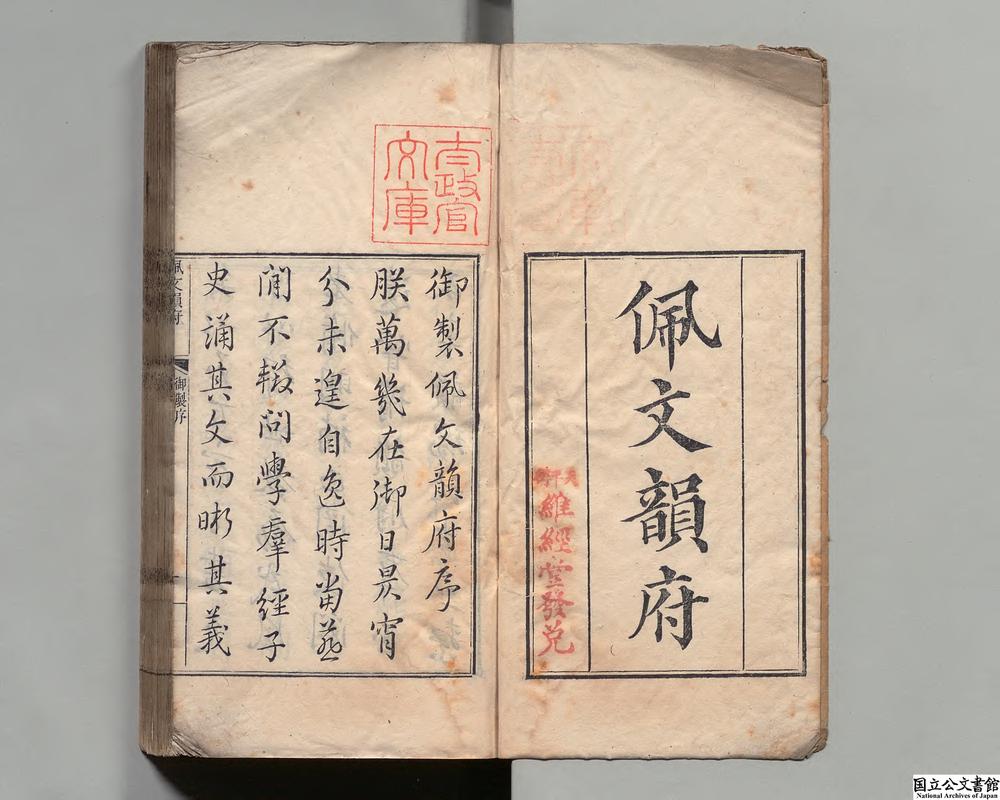 佩文韻府
天平街
維經堂發兌
太政官
文庫
御製佩文韻府序
朕萬幾在御日昃宵
分未遑自逸時當燕
閒不輟問學羣經子
史誦其文而晰其義
佩文韻府
御製序
国立公文書館
National Archives of Japan